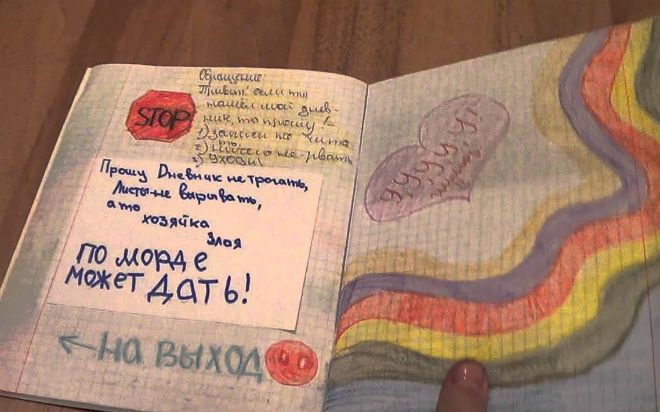 STOP
Обращение:
Привет! если ты
нашёл мой днев-
ник, то прошу!
1) Записи не чита
ть
2) Ничего не рвать
3) Уходи!
Прошу Dневник не трогать,
Листы не вырывать,
а то
хозяйка
Злая
по морде
может дать!
← На выход